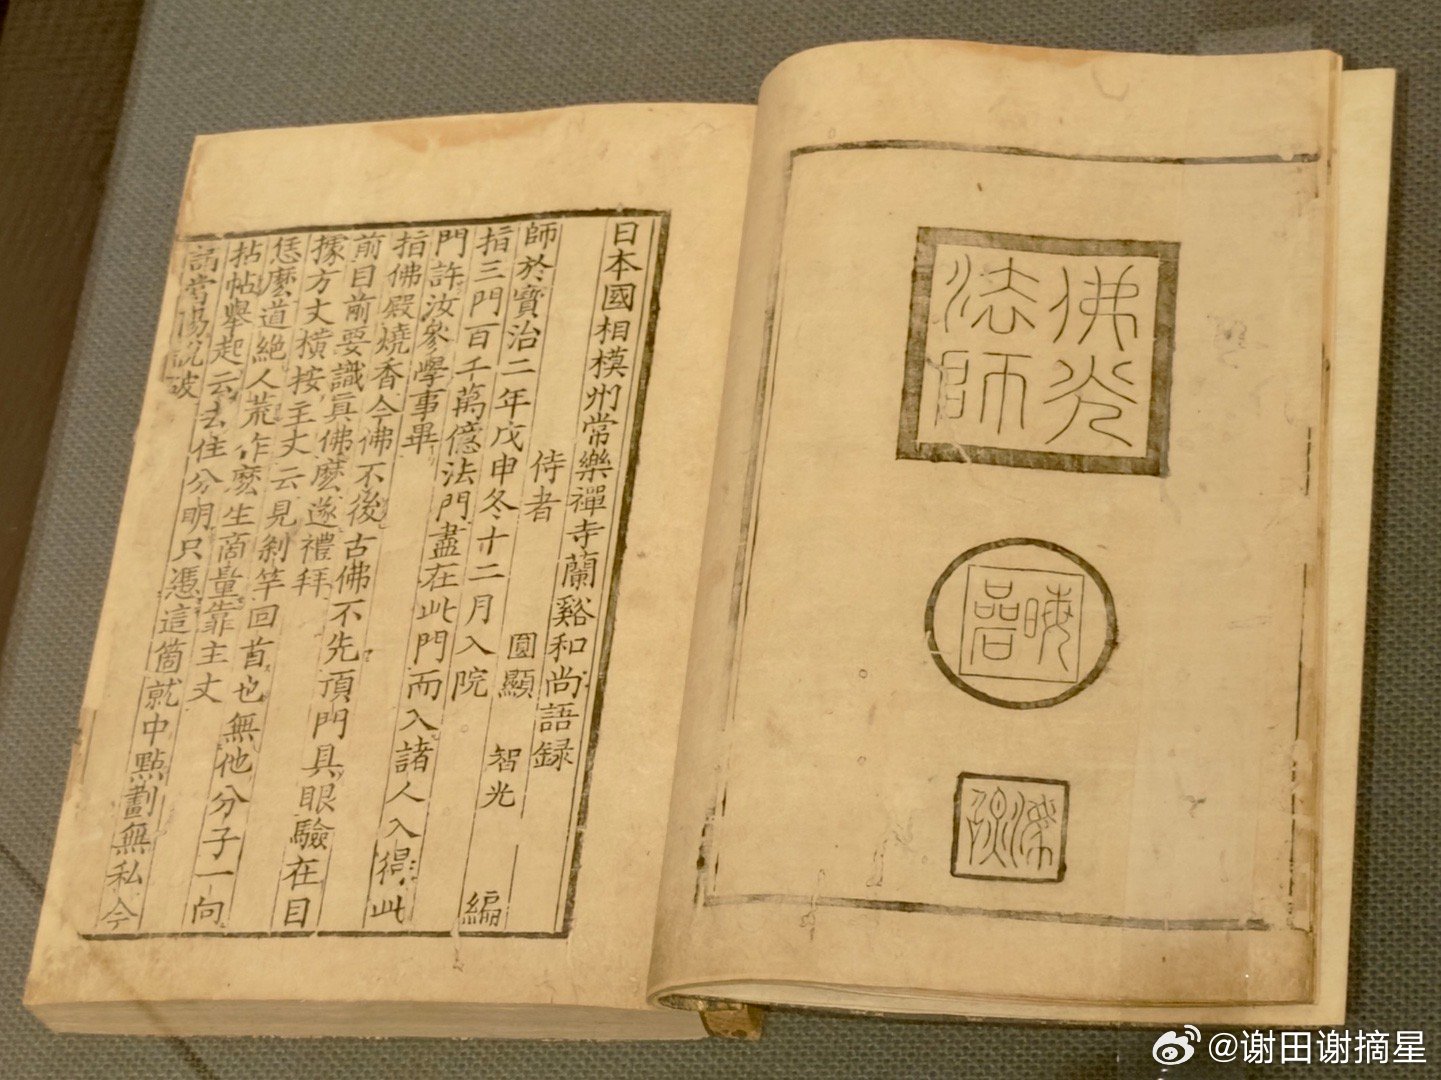 佛光
法師
晦碞
日本國相模州常樂禪寺蘭谿和尚語録
侍者 圓顯 智光 編
師於寶治二年戊申冬十二月入院
指三門百千萬億法門盡在此門而入諸人入得此
門許汝參學事畢
指佛殿燒香今佛不後古佛不先頂門具眼驗在目
前目前要識眞佛麽遂禮拜
據方丈橫按主丈云見刹竿回首也無他分子一向
恁麽道絶人荒乍麽生商量靠主丈
拈帖舉起云去住分明只憑這箇就中點劃無私今
當陽説破
@谢田谢摘星